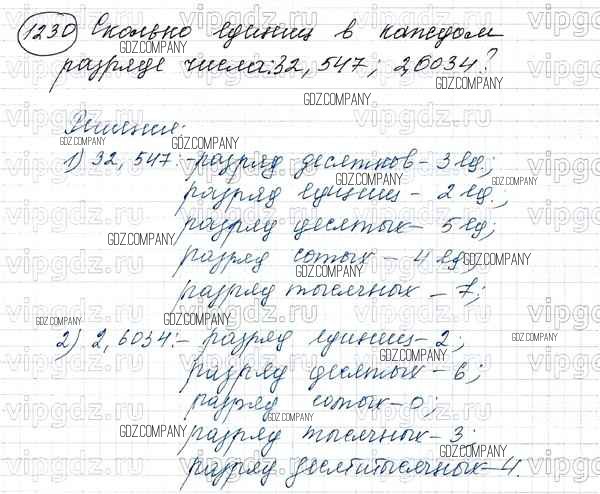 1230 Сколько единиц в каждом
разряде числа: 32,547; 2,6034?
Решение:
1) 32,547: - разряд десятков - 3 ед;
разряд единиц - 2 ед.;
разряд десятых - 5 ед;
разряд сотых - 4 ед;
разряд тысячных - 7;
2) 2,6034: - разряд единиц - 2;
разряд десятых - 6;
разряд сотых - 0;
разряд тысячных - 3;
разряд десятитысячных - 4.